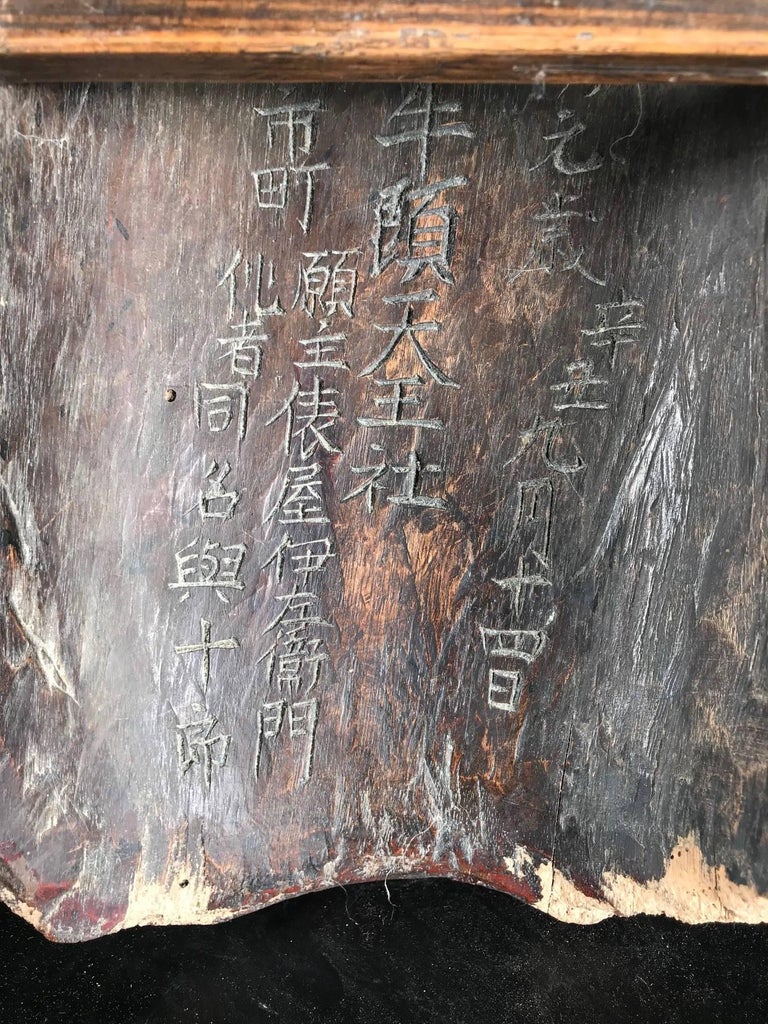 元歳辛丑九月十四日
牛頭天王社
市町
願主俵屋伊左衛門
仏者同名與十郎